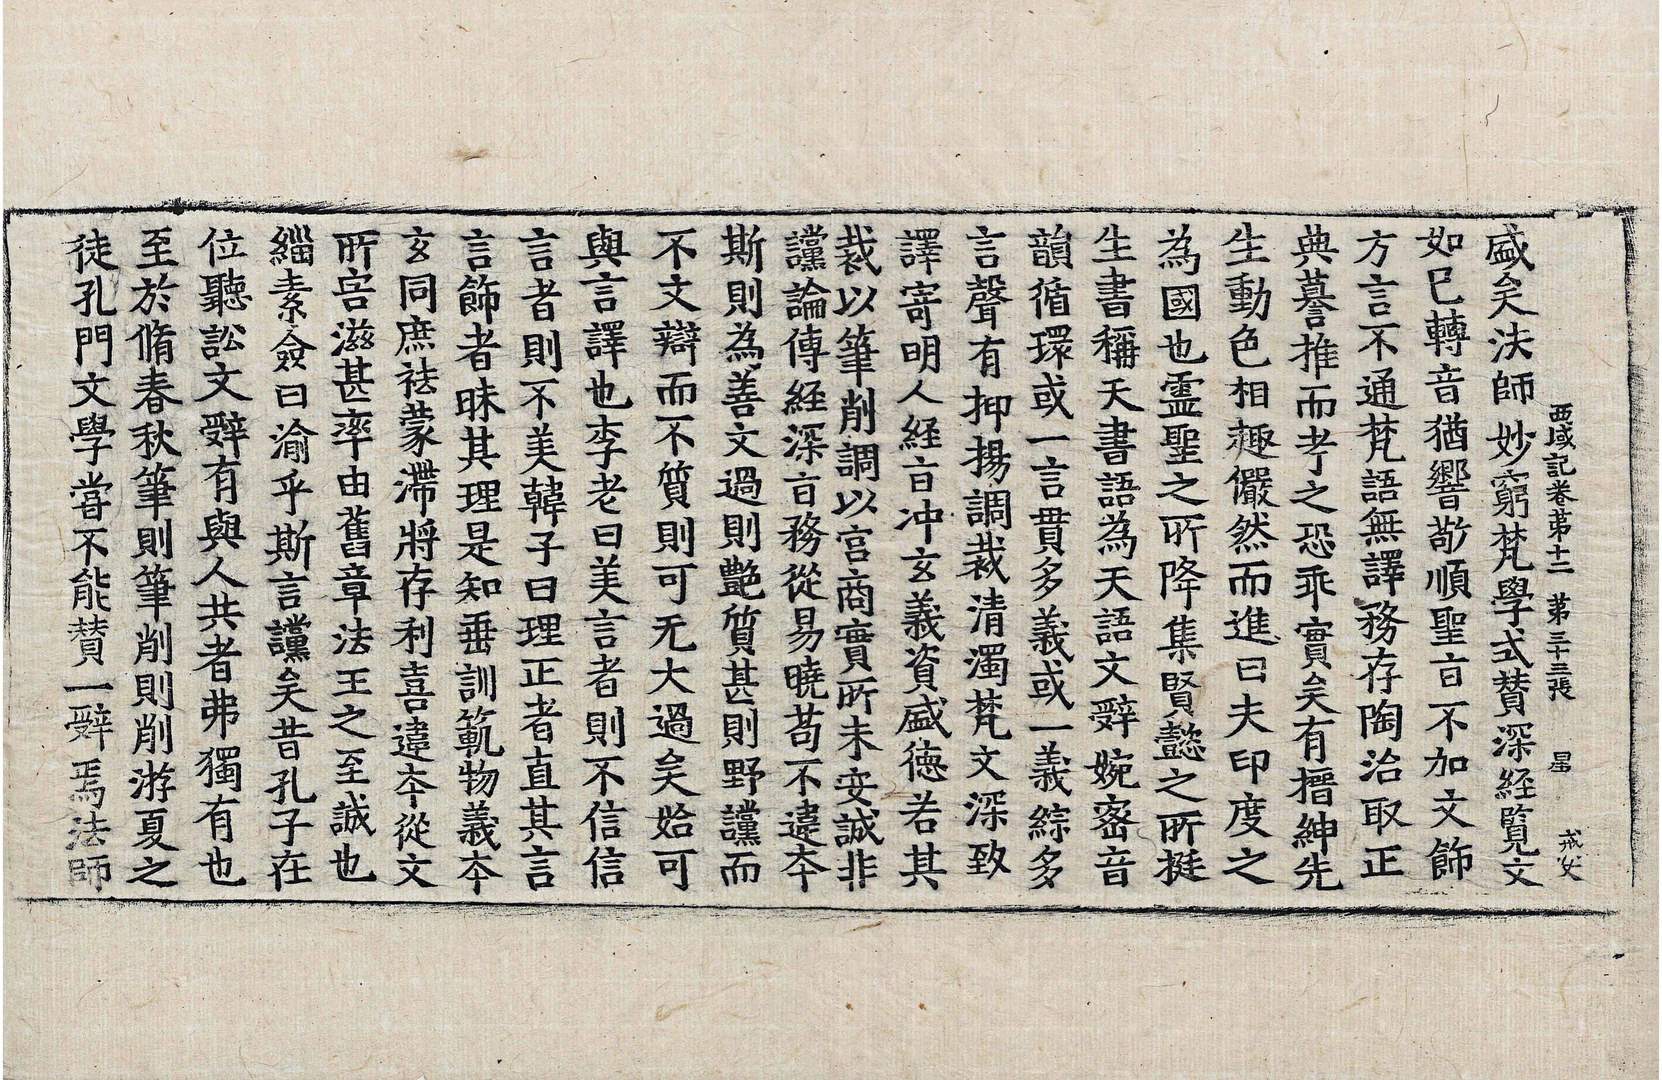 西域記卷第十二 第三十三張 星 戒安
盛矣法師妙窮梵學式賛深經覽文
如已轉音猶響敬順聖旨不加文飾
方言不通梵語無譯務存陶冶取正
典謩推而考之恐乖實矣有搢紳先
生動色相趣儼然而進曰夫印度之
為國也靈聖之所降集賢懿之所挺
生書稱天書語為天語文辭婉密音
韻循環或一言貫多義或一義綜多
言聲有抑揚調裁清濁梵文深致
譯寄明人經旨冲玄義資盛德若其
裁以筆削調以宮商實所未安誠非
讜論傳經深旨務從易曉苟不違本
斯則為善文過則艶質甚則野讜而
不文辯而不質則可无大過矣始可
與言譯也李老曰美言者則不信信
言者則不美韓子曰理正者直其言
言飾者昧其理是知垂訓範物義本
玄同庶祛蒙滯將存利喜違本從文
所害滋甚率由舊章法王之至誠也
緇素僉曰渝乎斯言讜矣昔孔子在
位聽訟文辭有與人共者弗獨有也
至於脩春秋筆則筆削則削游夏之
徒孔門文學嘗不能賛一辭焉法師